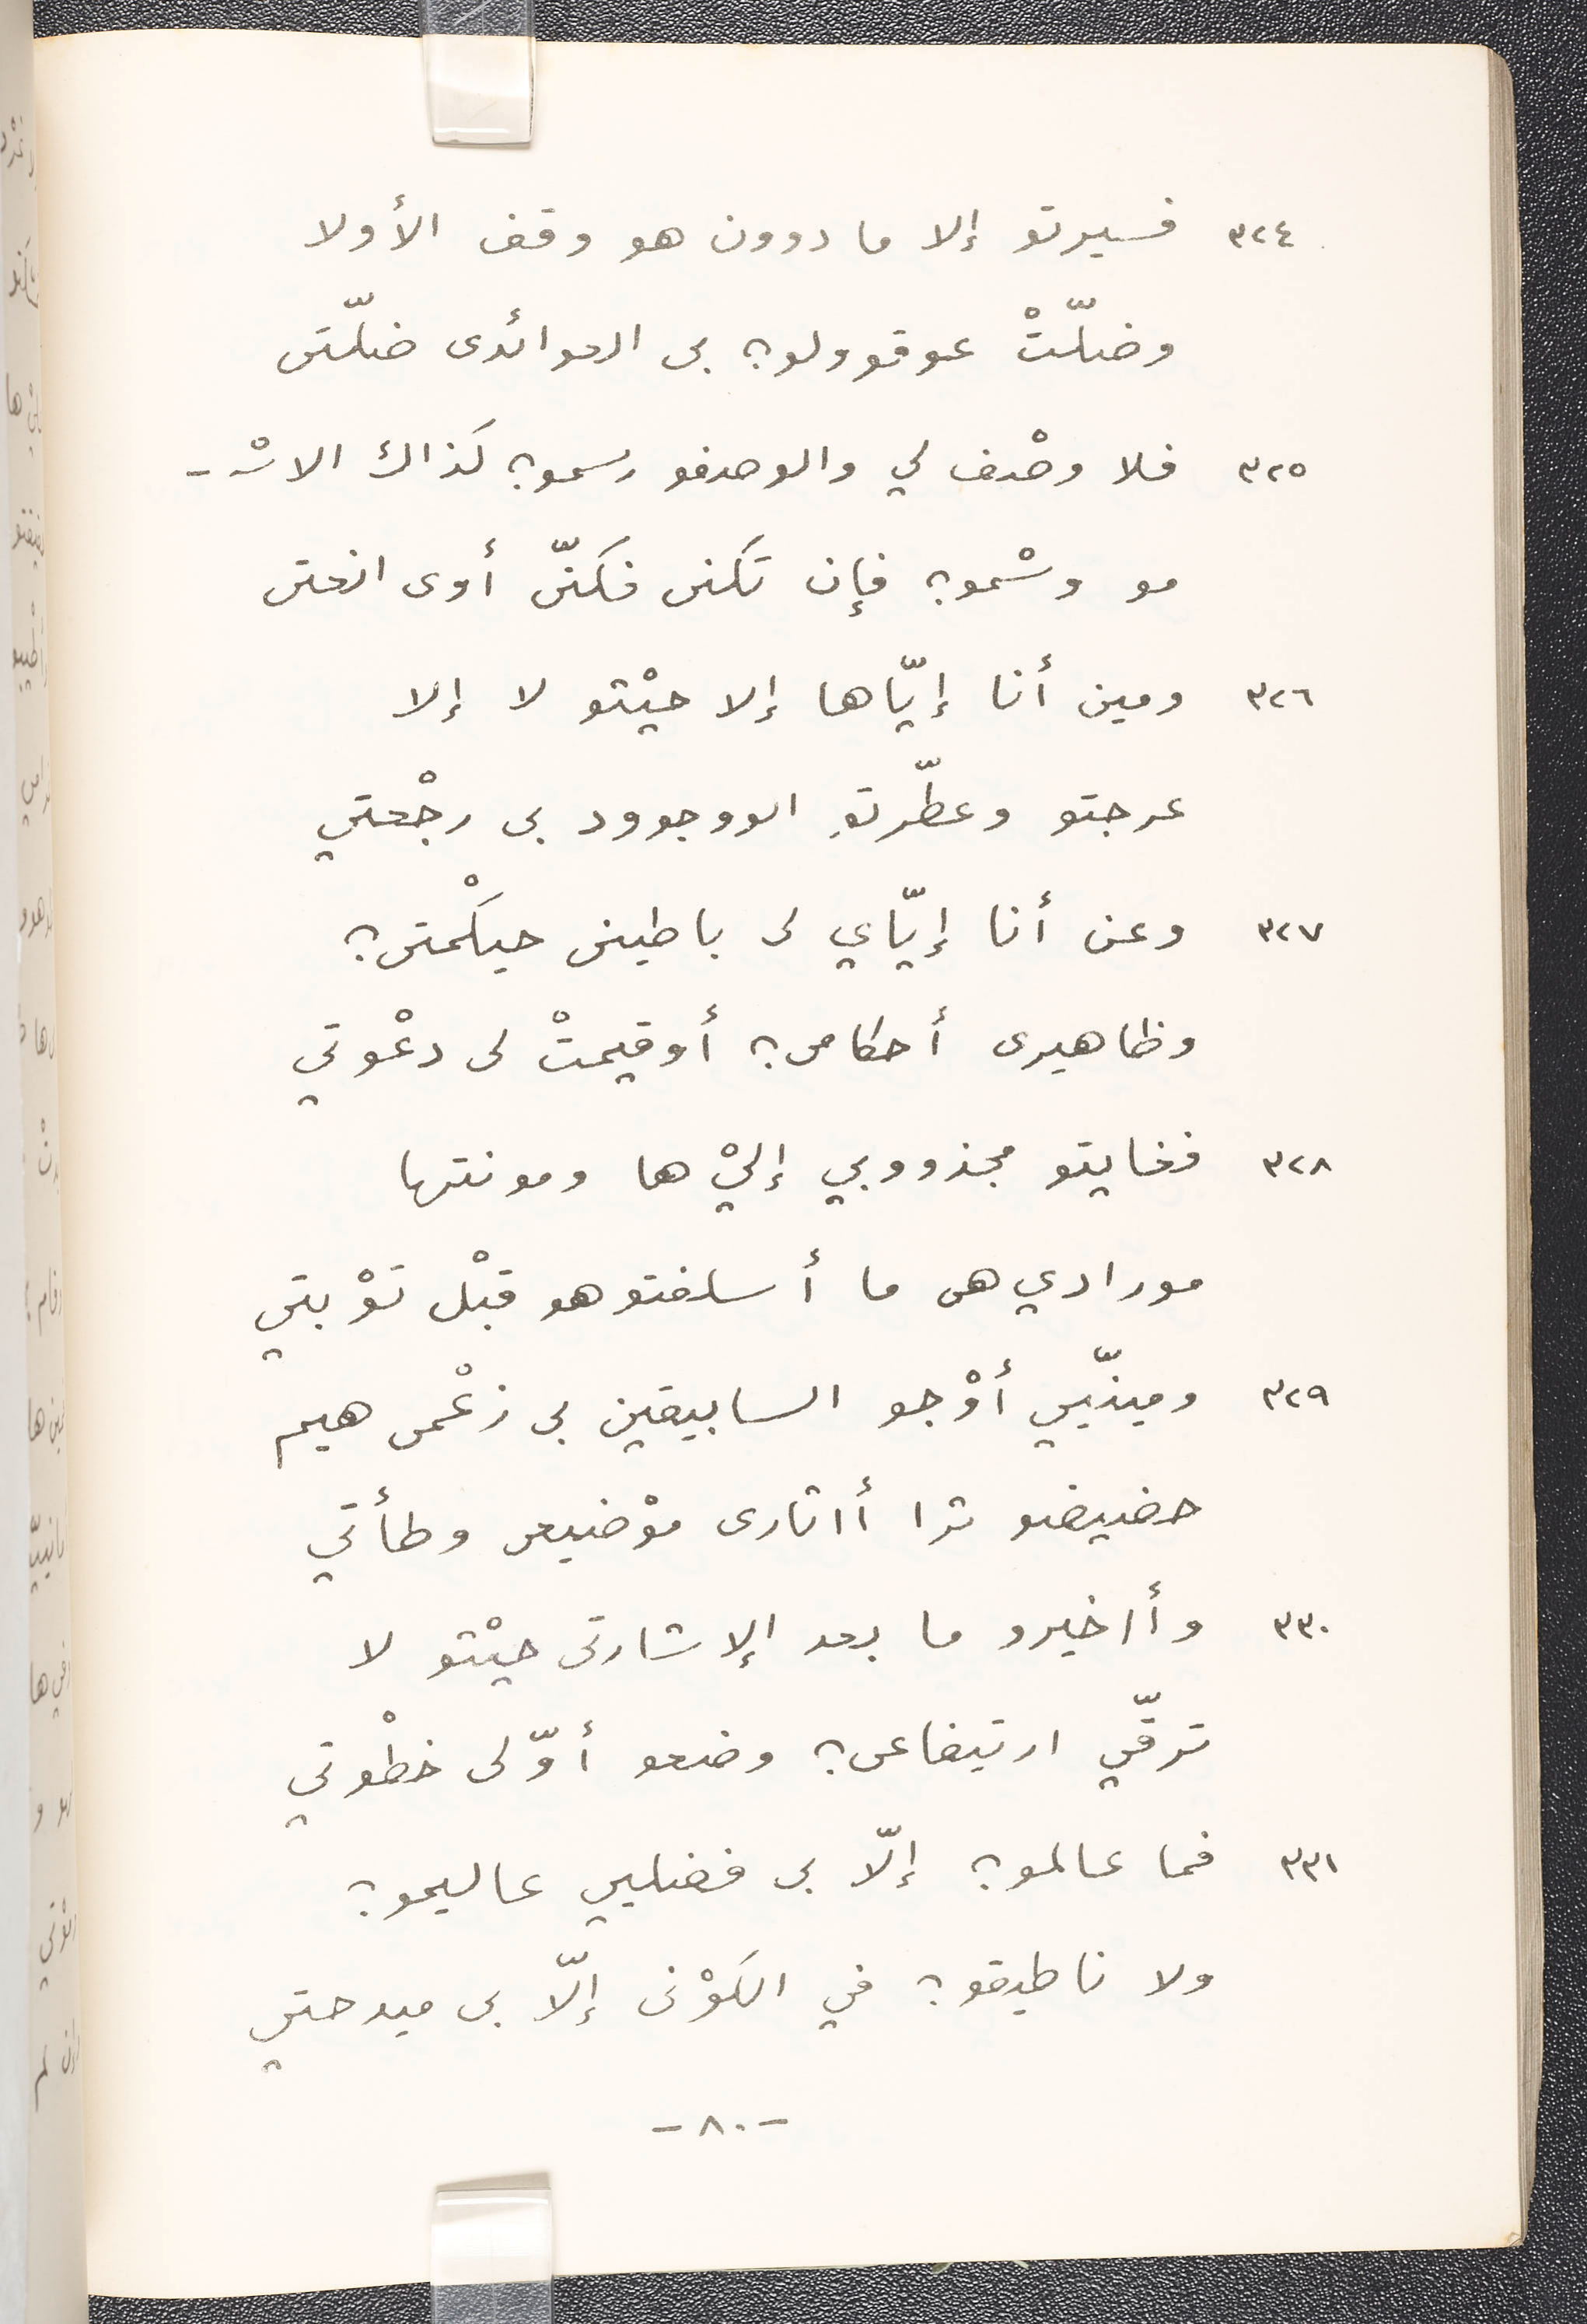 ٣٢٤ فسيرتو إلا ما دوون هو وقف الأولا
وضلّتْ عوقوولو؟ بى العوائدى ضلّتى
٣٢٥ فلا وصْف لي والوصفو رسمو؟ كذاك الاسْ -
مو وسْمو؟ فإن تكنى فكنّى أوى انعتى
٣٢٦ ومين أنا إيّاها إلا حيْثو لا إلا
عرجتو وعطّرتو الووجوود بى رجْعتي
٣٢٧ وعن أنا إيّاي لى باطينى حيكْمتى؟
وظاهيرى أحكامى؟ أوقيمتْ لى دعْوتي
٣٢٨ فغايتو مجذووبي إليْ ها ومونتها
موراديهى ما أسلفتو هو قبْل توْبتي
٣٢٩ ومينّيي أوْجو السابيقين بى زعْمى هيم
حضيضو ثرا أاثارى موْضيعى وطأتي
٣٣٠ وأاخيرو ما بعد الإشارتى حيْثو لا
ترقّي ارتيفاعى؟ وضعو أوّلى خطْوتي
٣٣١ فما عالمو؟ إلّا بى فضليي عاليمو؟
ولا ناطيقو؟ في الكوْنى إلّا بى ميدحتي
-٨٠-